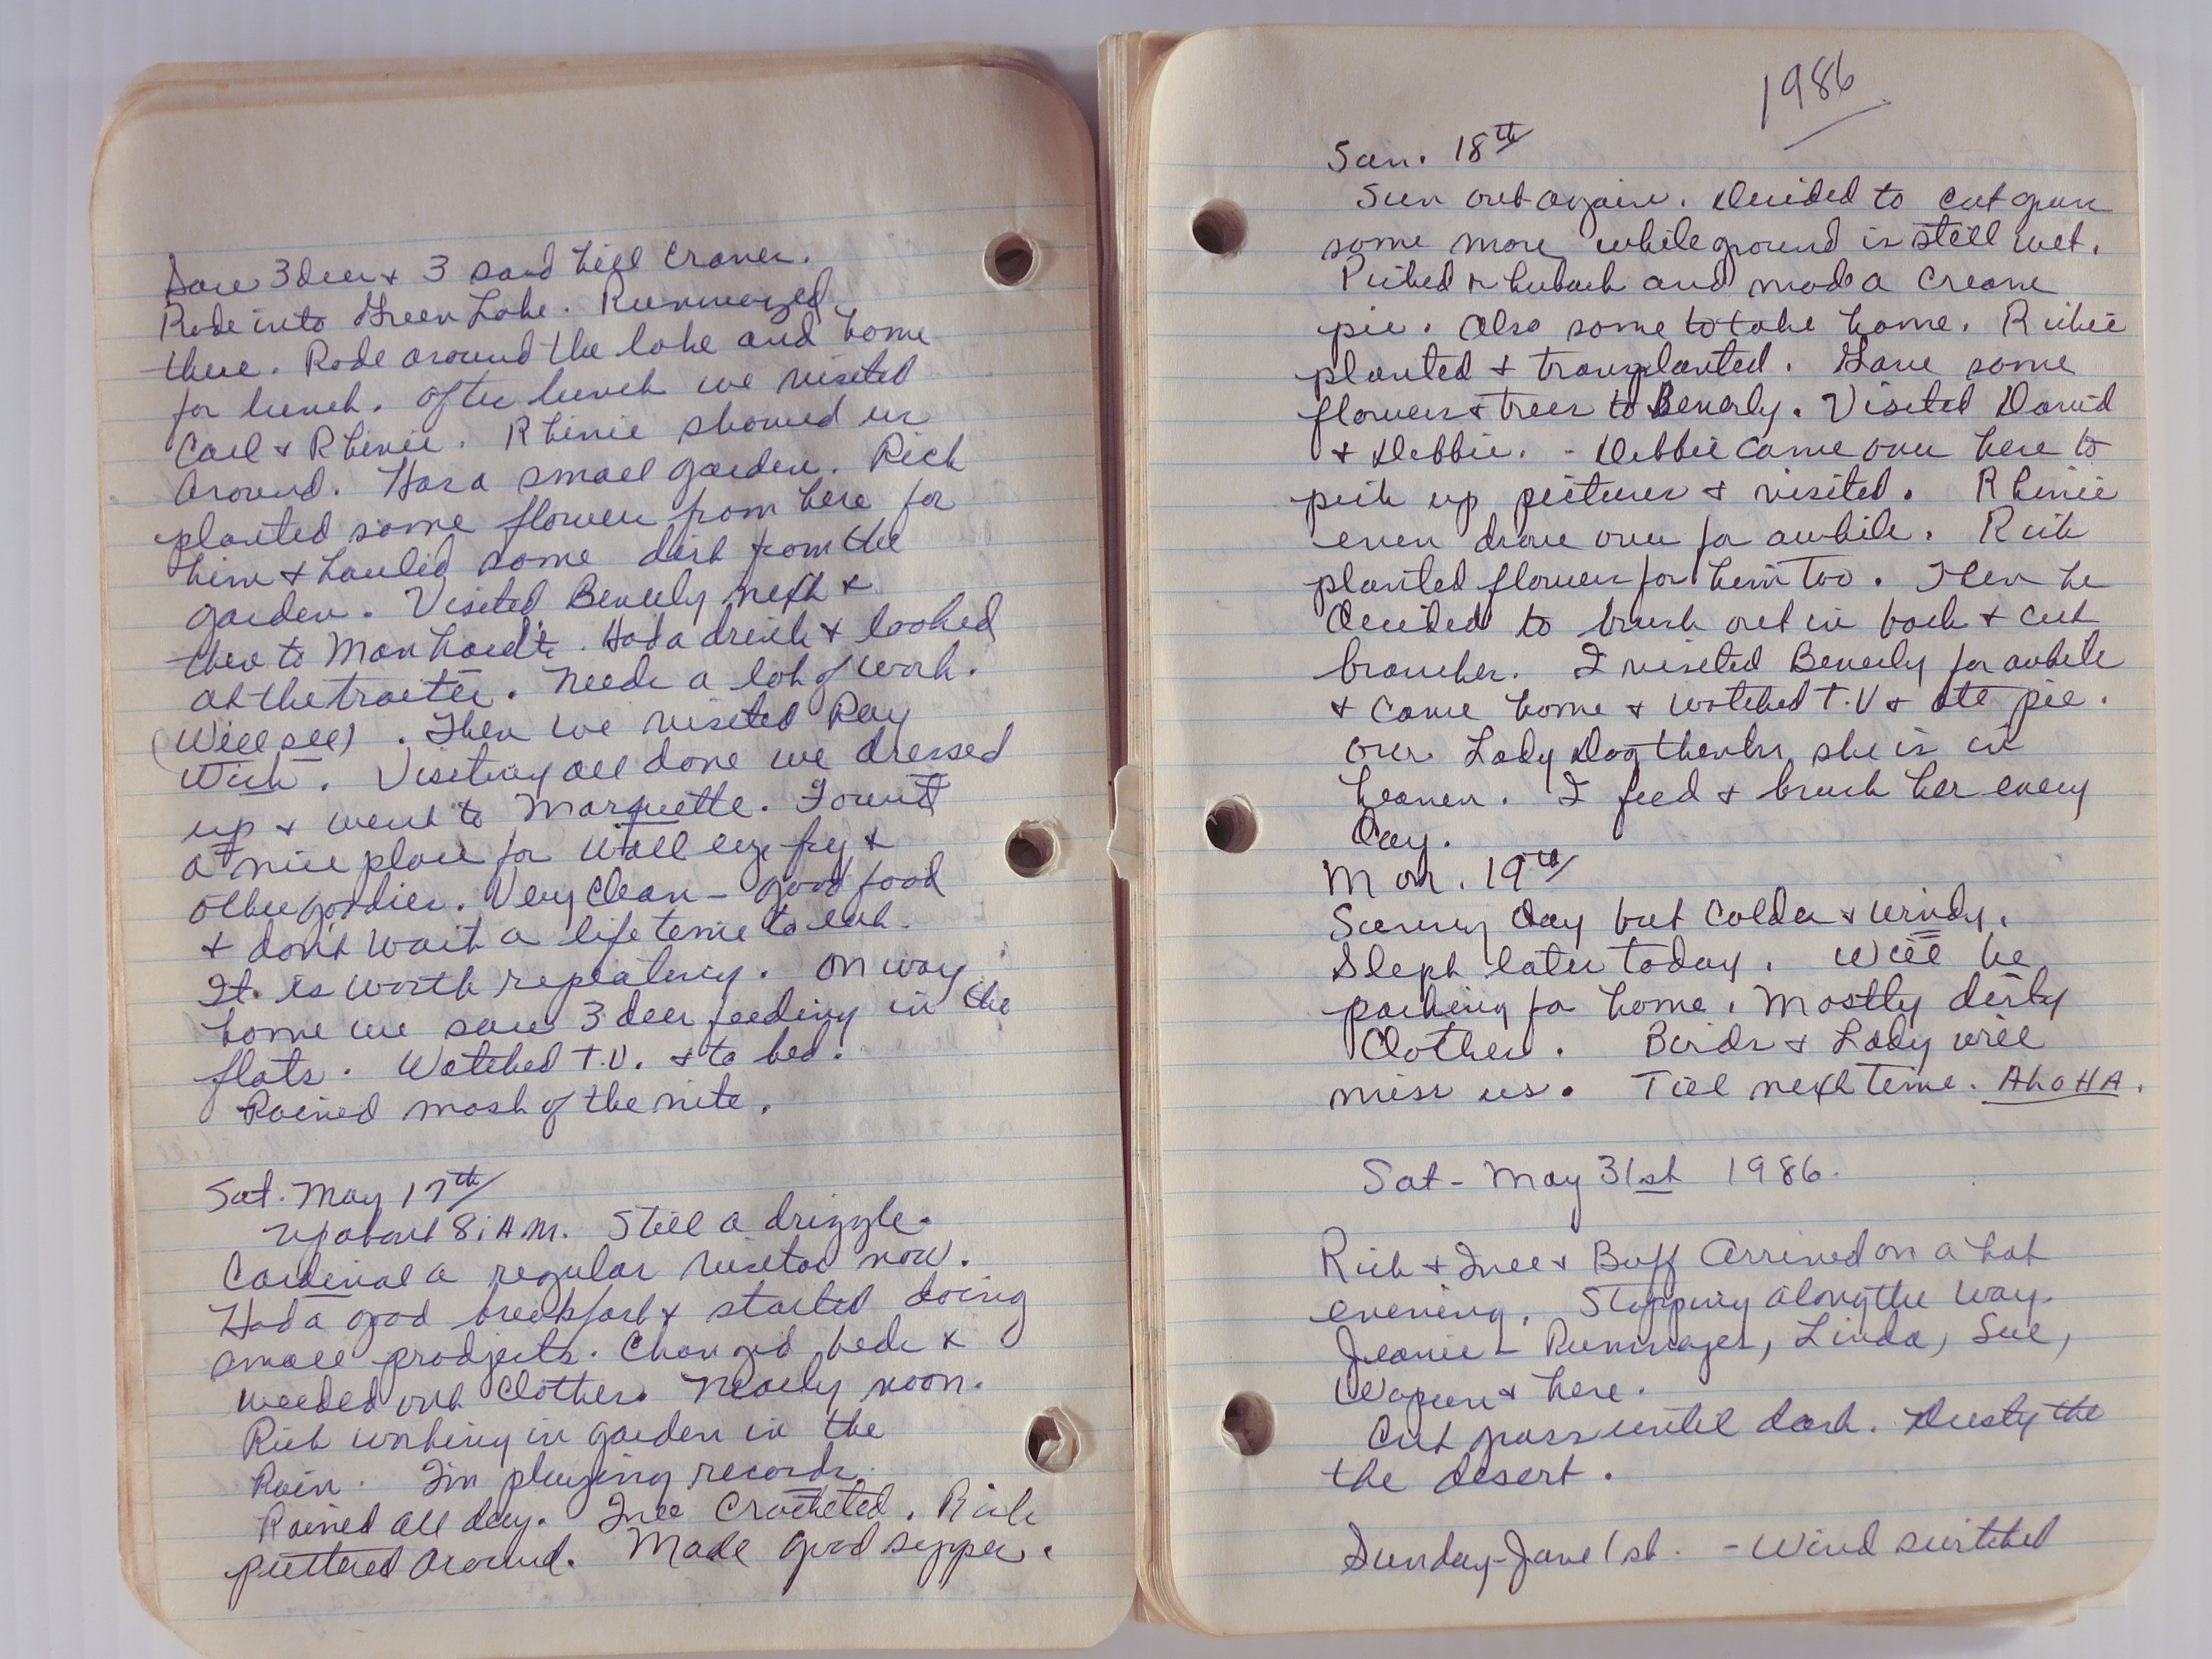 Saw 3 deer & 3 sand hill cranes.
Rode into Green Lake. Rummaged
there. Rode around the lake and home
for lunch. After lunch we visited
Carl & Rhinie. Rhinie showed us
around. Has a small garden. Rich
planted some flowers from here for
him & hauled some dirt from the
garden. Visited Beverly next &
then to Manhardts. Had a drink &  looked
at the trailer. Needs a lot of work.
(Will see). Then we visited Ray
Wick. Visiting all done we dressed
up & went to Marquette. Found
a nice place for Wall eye fry &
other goodies. Very clean - good food
& don't wait a life time to eat.
It is worth repeating. On way
home we saw 3 deer feeding in the
flats. Watched T.V. & to bed.
Rained most of the nite.
Sat. May 17th
Up about 8: A.M. Still a drizzle.
Cardinal a regular visitor now.
Had a good breakfast & started doing
small prodjects. Changed beds &
weeded out clothes. Nearly noon.
Rich working in garden in the
Rain. I'm playing records.
Rained all day. Inee Crocheted. Rich
puttered around. Made good supper.
1986
Sun. 18th
Sun out again. Decided to cut grass
some more while ground is still wet.
Picked rhubarb and made a cream
pie. Also some to take home. Richie
planted & transplanted. Gave some
flowers & trees to Beverly. Visited David
& Debbie. - Debbie came over here to
pick up pictures & visited. Rhinie
even drove over for awhile. Rich
planted flowers for him too. Then he
decided to brush out in back & cut
branches. I visited Beverly for awhile
& came home & watched T.V & ate pie.
Our Lady Dog thinks she is in
heaven. I feed & brush her every
day.
Mon. 19th
Sunny day but colder & windy.
Slept later today. Will be
packing for home. Mostly dirty
clothes. Birds & Lady will
miss us. Till next time. AhoHA.
Sat - May 31st 1986.
Rich & Inee & Buff Arrived on a hot
evening. Stopping along the way.
Jeanie - Rummages, Linda, Sue,
Waupun & here.
Cut grass until dark. Dusty the
the desert.
Sunday - June 1st. - Wind switched